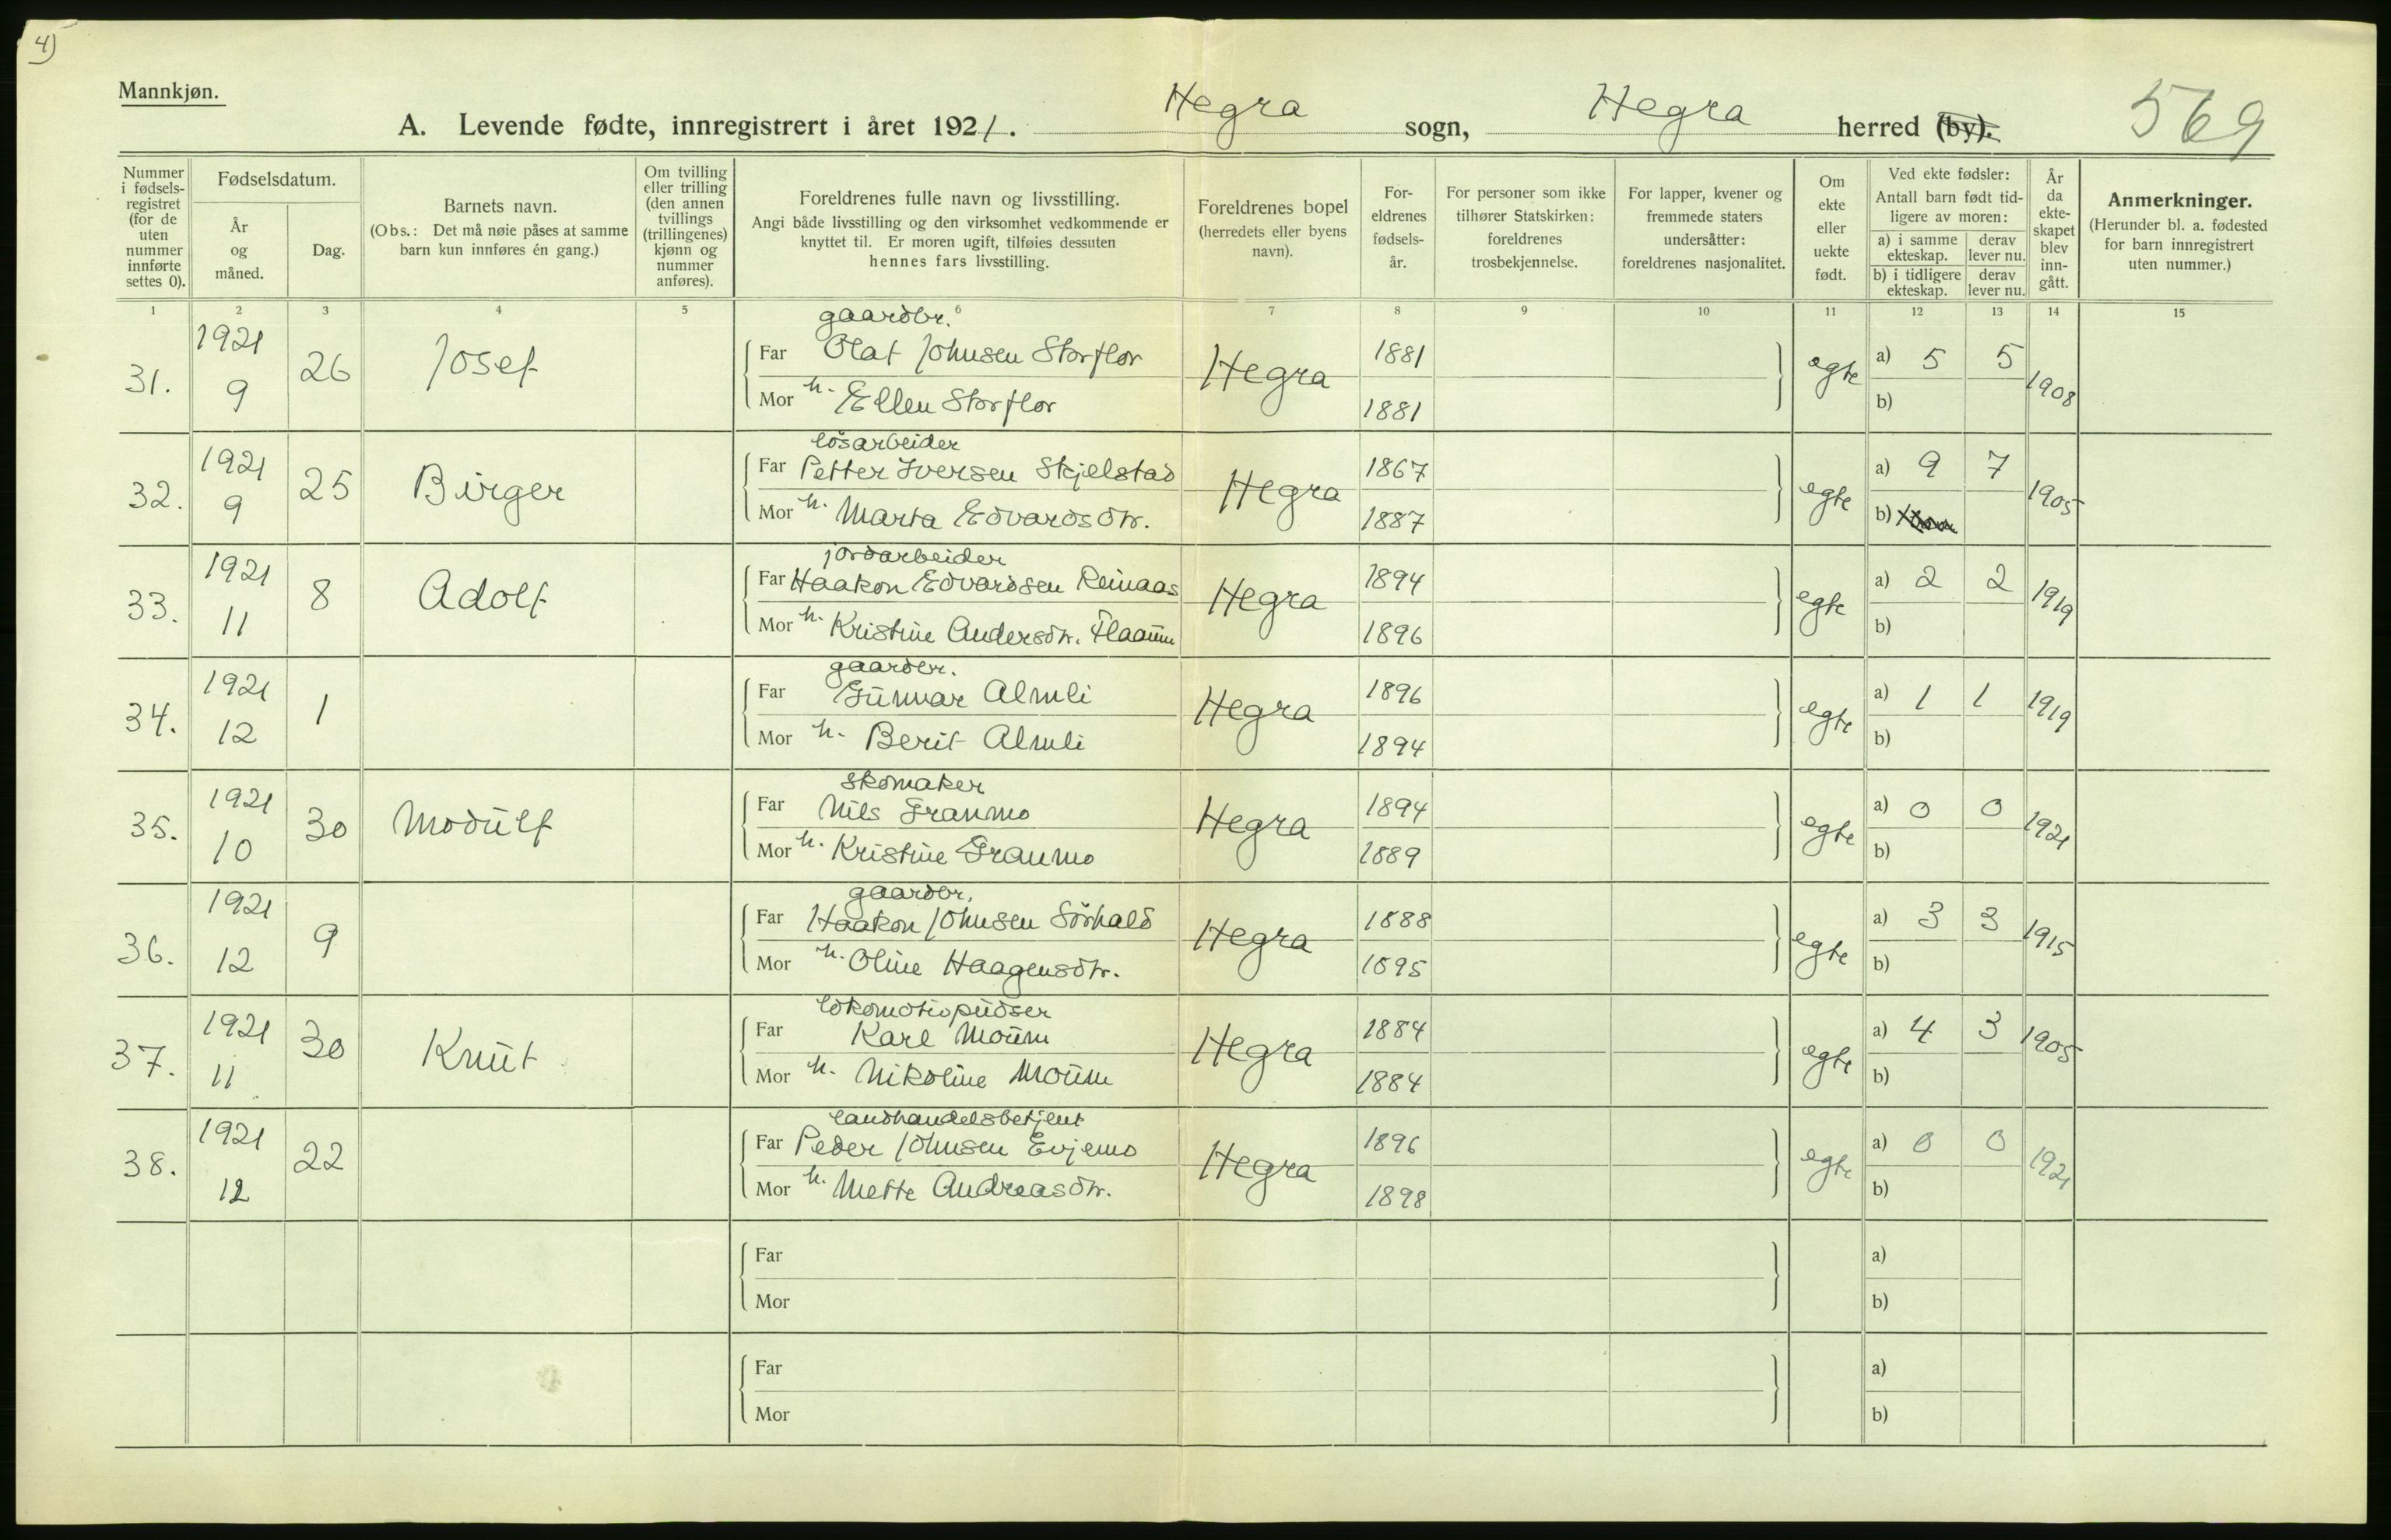 4)
Mannkjøn.
A. Levende fødte, innregistrert i året 1921. Hegra sogn, Hegra herred (by).
569
Nummer i fødsels-registret (for de uten nummer innførte settes 0).
Fødselsdatum.
År og måned.
Dag.
Barnets navn.
(Obs.: Det må nøie påses at samme barn kun innføres én gang.)
Om tvilling eller trilling (den annen tvillings (trillingenes) kjønn og nummer anføres).
Foreldrenes fulle navn og livsstilling.
Angi både livsstilling og den virksomhet vedkommende er knyttet til. Er moren ugift, tilføies dessuten hennes fars livsstilling.
Foreldrenes bopel (herredets eller byens navn).
For-eldrenes fødsels-år.
For personer som ikke tilhører Statskirken: foreldrenes trosbekjennelse.
For lapper, kvener og fremmede staters undersåtter: foreldrenes nasjonalitet.
Om ekte eller uekte født.
Ved ekte fødsler:
Antall barn født tid-ligere av moren:
a) i samme ekteskap. derav lever nu.
b) i tidligere ekteskap. derav lever nu.
År da ekte-skapet blev inn-gått.
Anmerkninger.
(Herunder bl. a. fødested for barn innregistrert uten nummer.)
1 2 3 4 5 6 7 8 9 10 11 12 13 14 15
gaardbr.
31. 1921 9 26 Josef Far Olaf Johnsen Storflor Hegra 1881 egte a) 5 5 1908
Mor h. Ellen Storflor 1881 b)
løsarbeider
32. 1921 9 25 Birger Far Petter Iversen Skjelstad Hegra 1867 egte a) 9 7 1905
Mor h. Marta Edvardsdtr. 1887 b)
jordarbeider
33. 1921 11 8 Adolf Far Haakon Edvardsen Reinaas Hegra 1894 egte a) 2 2 1919
Mor h. Kristine Andersdtr. Flaamo 1896 b)
gaardbr.
34. 1921 12 1 Far Gunnar Almli Hegra 1896 egte a) 1 1 1919
Mor h. Berit Almli 1894 b)
skomaker
35. 1921 10 30 Modulf Far Nils Granmo Hegra 1894 egte a) 0 0 1921
Mor h. Kristine Granmo 1889 b)
gaardbr.
36. 1921 12 9 Far Haakon Johnsen Sørhald Hegra 1888 egte a) 3 3 1915
Mor h. Oline Haagensdtr. 1895 b)
lokomotivpudser
37. 1921 11 30 Knut Far Karl Moum Hegra 1884 egte a) 4 3 1905
Mor h. Nikoline Moum 1884 b)
landhandelsbetjent
38. 1921 12 22 Far Peder Johnsen Evjemo Hegra 1896 egte a) 0 0 1921
Mor h. Mette Andreasdtr. 1898 b)
Far a)
Mor b)
Far a)
Mor b)